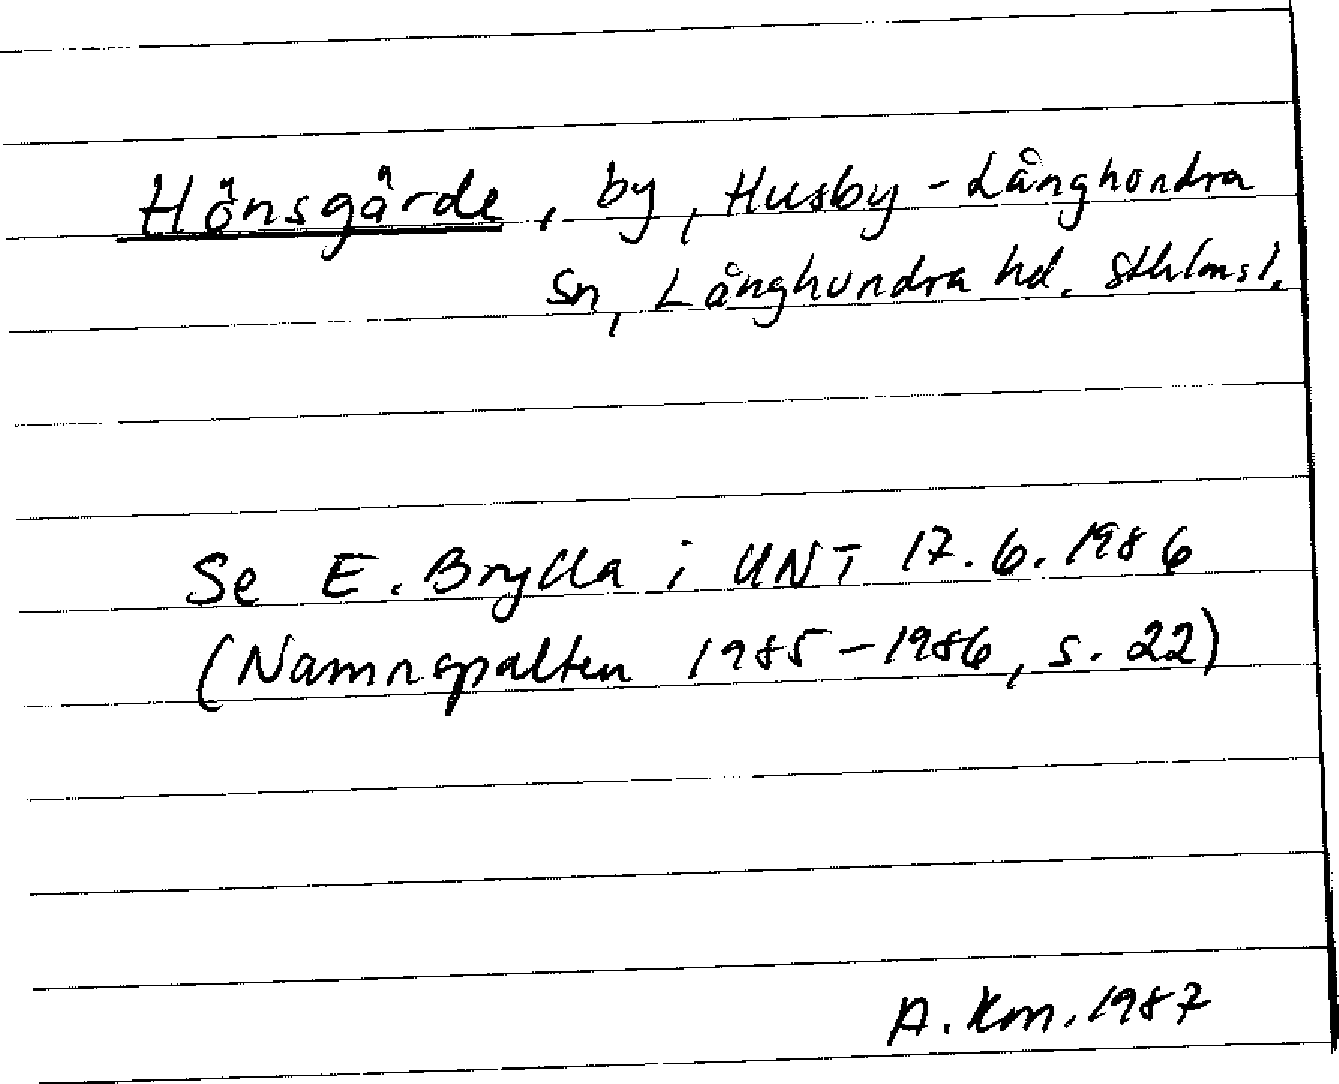 Hönsgärde, by, Husby-Långhundra
sn, Långhundra hd. Sthlms l.
Se E. Brylla i UNT 17.6.1986
(Namnspalten 1985-1986, s. 22)
A. Km. 1987